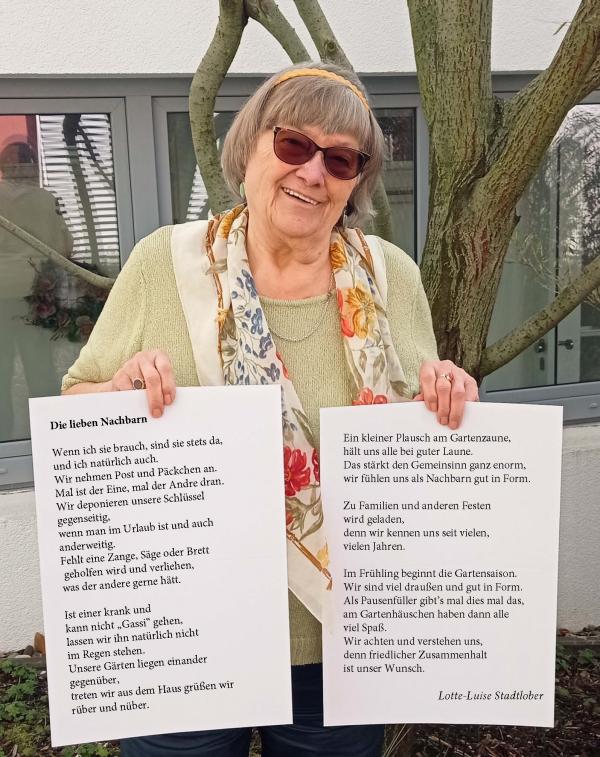 Die lieben Nachbarn
Wenn ich sie brauch, sind sie stets da,
und ich natürlich auch.
Wir nehmen Post und Päckchen an.
Mal ist der Eine, mal der Andre dran.
Wir deponieren unsere Schlüssel
gegenseitig,
wenn man im Urlaub ist und auch
anderweitig.
Fehlt eine Zange, Säge oder Brett
geholfen wird und verliehen,
was der andere gerne hätt.
Ist einer krank und
kann nicht „Gassi" gehen,
lassen wir ihn natürlich nicht
im Regen stehen.
Unsere Gärten liegen einander
gegenüber,
treten wir aus dem Haus grüßen wir
rüber und nüber.
Ein kleiner Plausch am Gartenzaune,
hält uns alle bei guter Laune.
Das stärkt den Gemeinsinn ganz enorm,
wir fühlen uns als Nachbarn gut in Form.
Zu Familien und anderen Festen
wird geladen,
denn wir kennen uns seit vielen,
vielen Jahren.
Im Frühling beginnt die Gartensaison.
Wir sind viel draußen und gut in Form.
Als Pausenfüller gibt's mal dies mal das,
am Gartenhäuschen haben dann alle
viel Spaß.
Wir achten und verstehen uns,
denn friedlicher Zusammenhalt
ist unser Wunsch.
Lotte-Luise Stadtlober